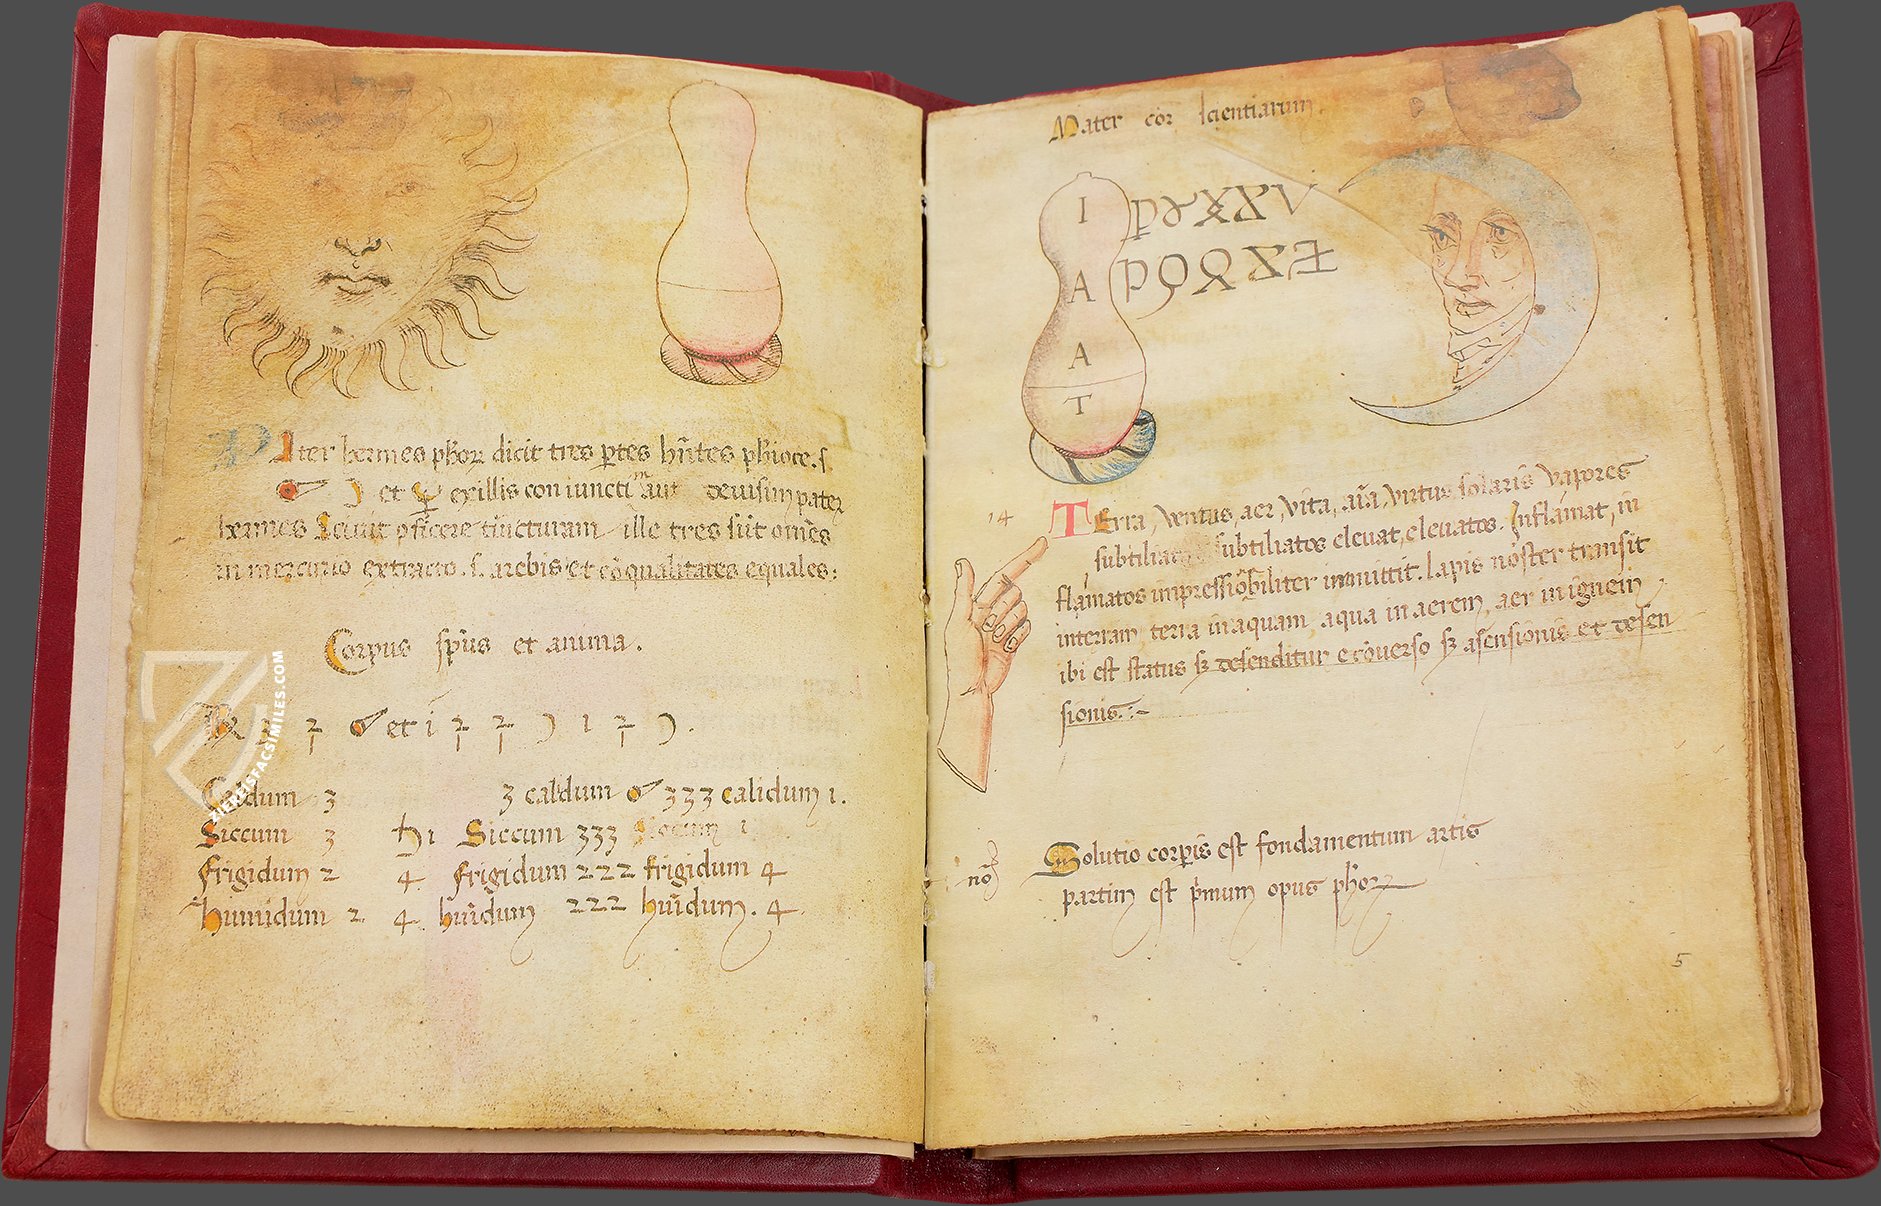 Pater hermes phor dicit tres ptes hñtes phioce. s.
et exillis con iuncti aut deuisim pater
hermes sciuit pficere tincturam ille tres sũt omẽs
in mercurio extracto. s. arebis et cõqualitates equales:
Corpus spũs et anima.
et
Calidum 3 3 calidum 333 calidum 1.
Siccum 3 ♄ 1 Siccum 333 Siccum 1
frigidum 2 4 frigidum 222 frigidum 4
humidum 2 4 hũidum 222 hũidum. 4.
ZIEREISFACSIMILES.COM
Mater cor scientiarum.
I
A
A
T
14
Terra, ventus, aer, vita, aĩa, virtus solaris vapores
subtiliat subtiliatos eleuat, eleuatos. Inflãmat, in
flãmatos impressiõbiliter inmittit. Lapis noster transit
interram terra in aquam aqua in aerem, aer in ignem
ibi est status sz desenditur ecõuerso sz asensionis et desen
sionis.:~
no
Solutio corpis est fondamentum artis
partim est pmum opus phor
5